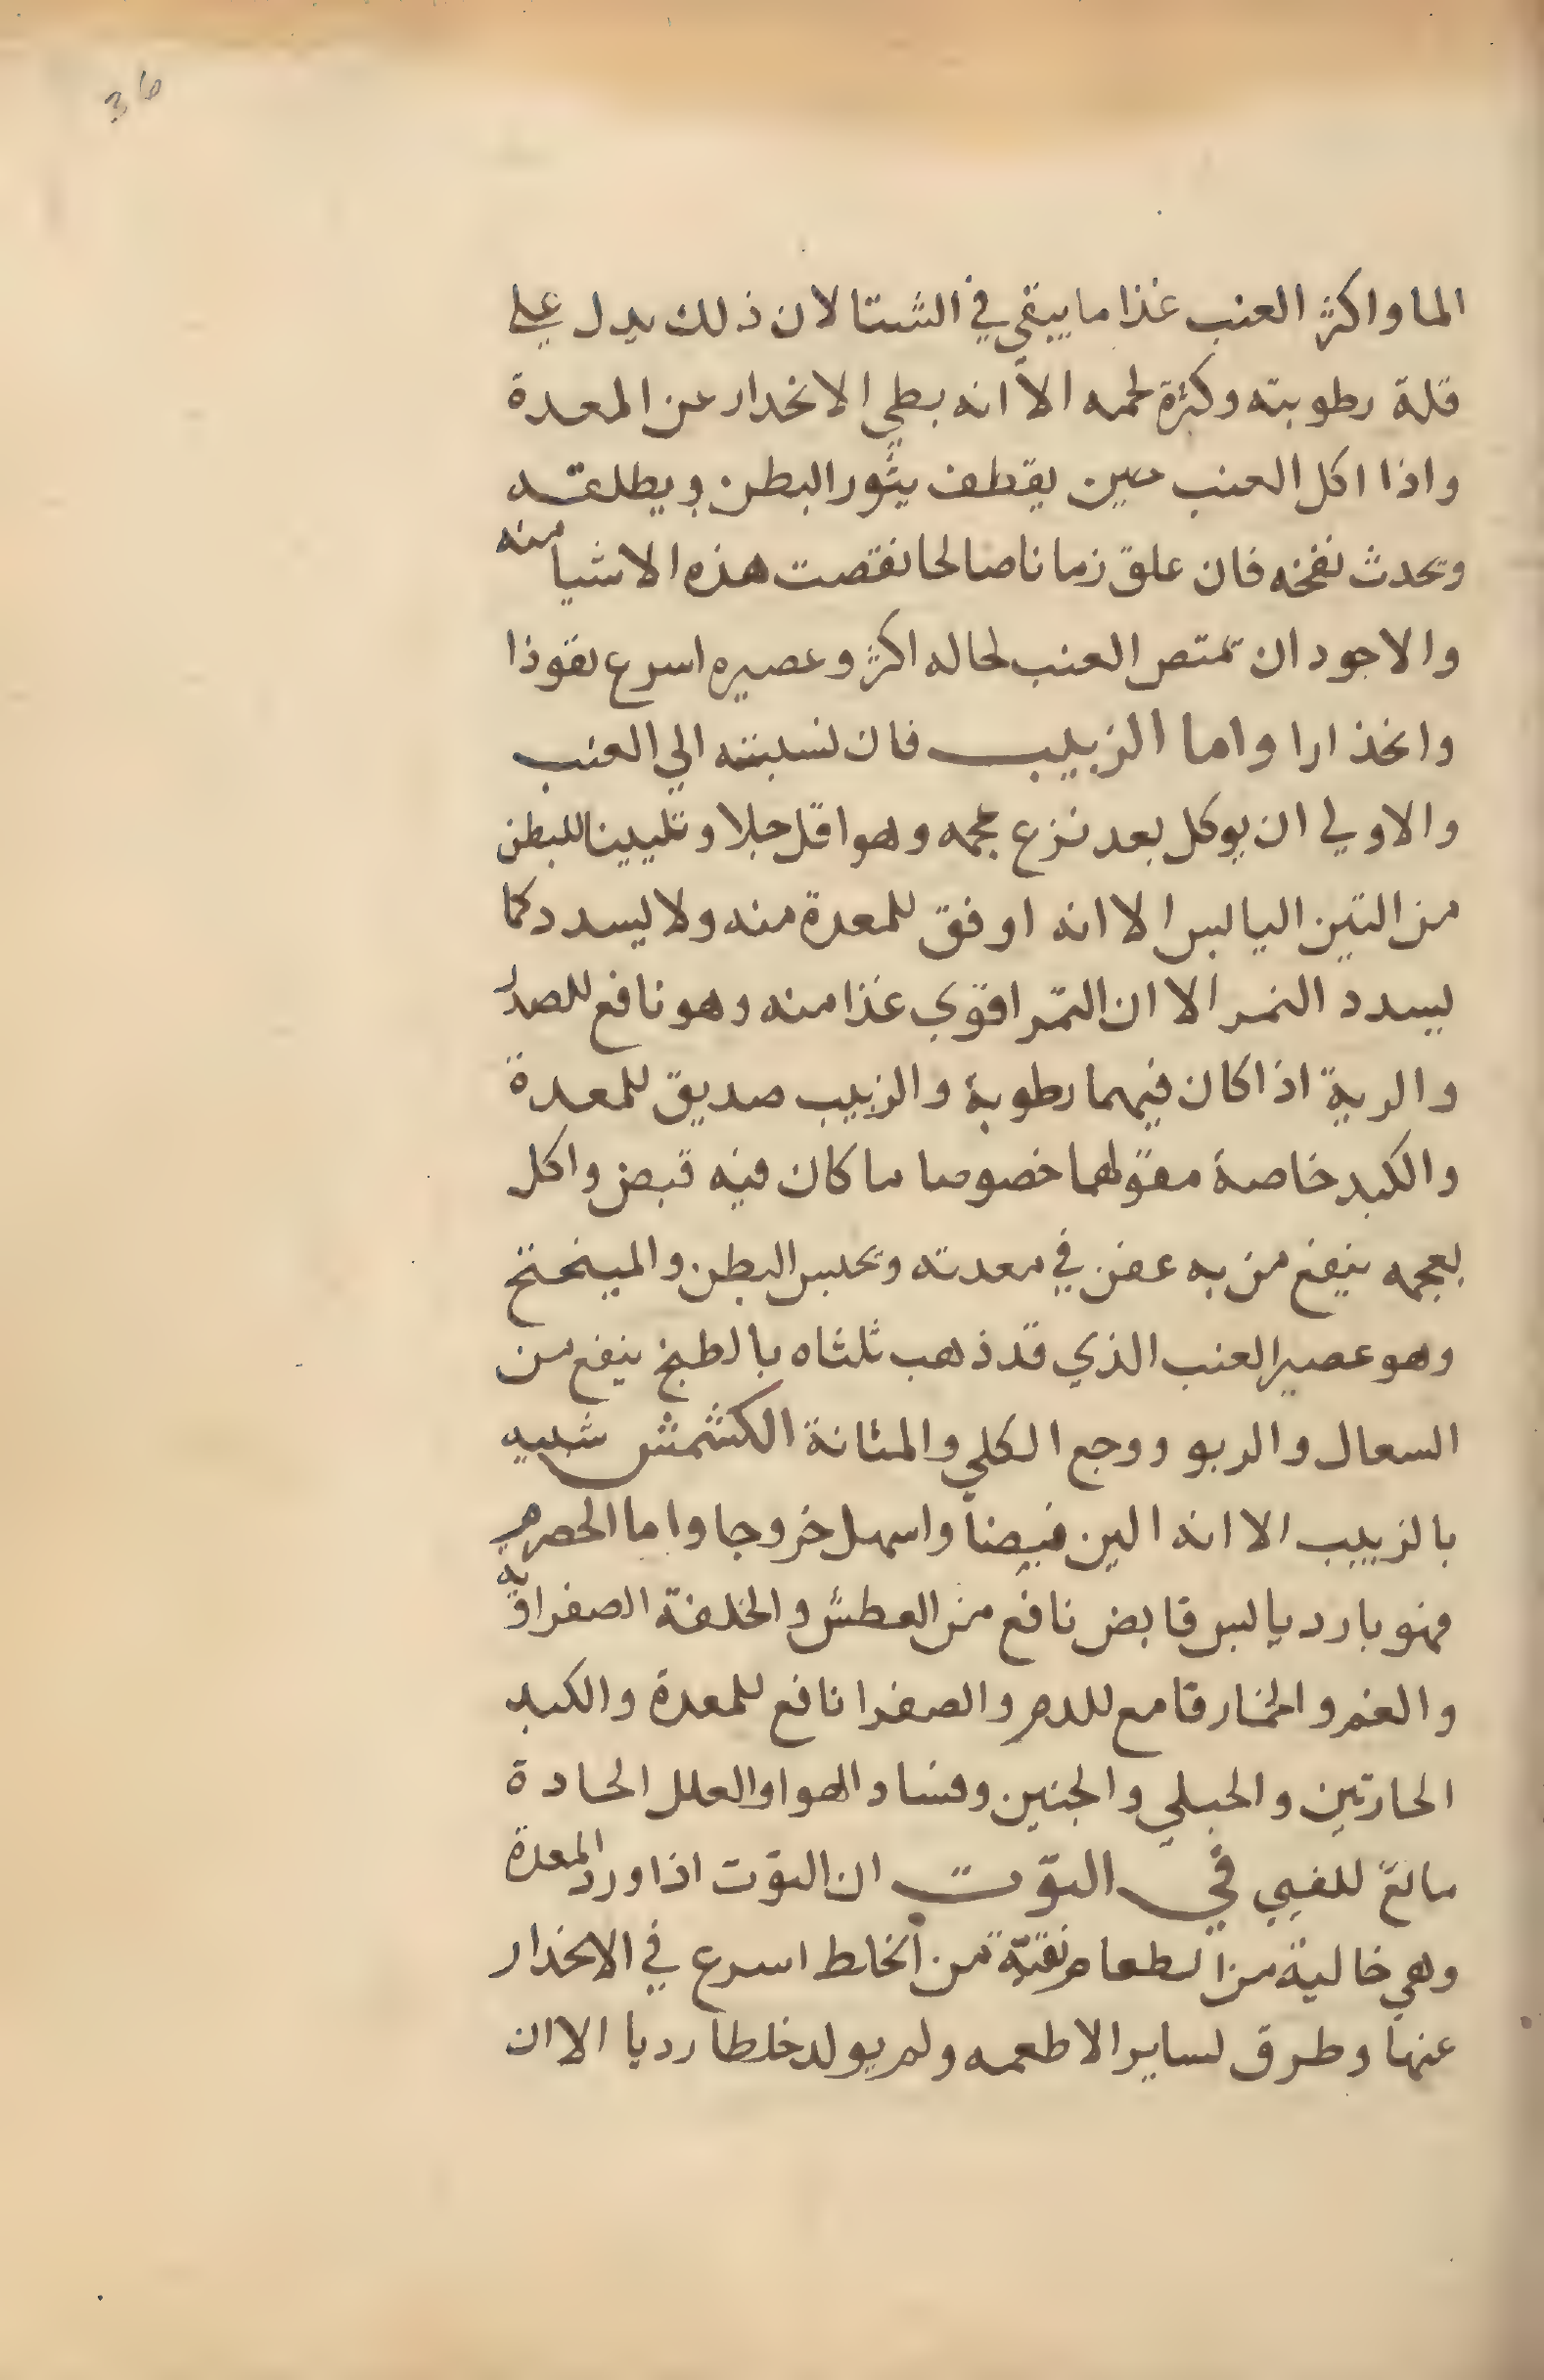 36
الما واكثر العنب غذا ما يبقي في الشتا لان ذلك يدل علي
قلة رطوبته وكثرة لحمه الا انه بطي الانحدار عن المعدة
واذا اكل العنب حين يقطف يثور البطن ويطلقه
ويحدث نفخه فان علق زمانا صالحا نقصت هذه الاشيا منه
والاجود ان تمتص العنب لحاله اكثر وعصيره اسرع نفوذا
وانحذارا واما الزبيب فان نسبته الي العنب
والاولي ان يوكل بعد نزع عجمه وهو اقل جلا وتليينا للبطن
من التين اليابس الا انه اوفق للمعدة منه ولا يسدد كما
يسدد التمر الا ان التمر اقوي غذا منه وهو نافع للصدر
والرية اذا كان فيهما رطوبة والزبيب صديق للمعدة
والكبد خاصة مقو لهما خصوصا ما كان فيه قبض واكل
بعجمه ينفع من به عفن في معدته ويحبس البطن والميبختج
وهو عصير العنب الذي قد ذهب ثلثاه بالطبخ ينفع من
السعال والربو ووجع الكلي والمثانة الكشمش شبيه
بالزبيب الا انه الين قبضا واسهل خروجا واما الحصرم
فهو بارد يابس قابض نافع من العطش والخلفة الصفراوية
والغم والخمار قامع للدم والصفرا نافع للمعدة والكبد
الحارتين والحبلي والجنين وفساد الهوا والعلل الحادة
مانع للقيي في التوت ان التوت اذا ورد المعدة
وهي خالية من الطعام نقية من الخلط اسرع في الانحذار
عنها وطرق لساير الاطعمه ولم يولد خلطا رديا الا ان